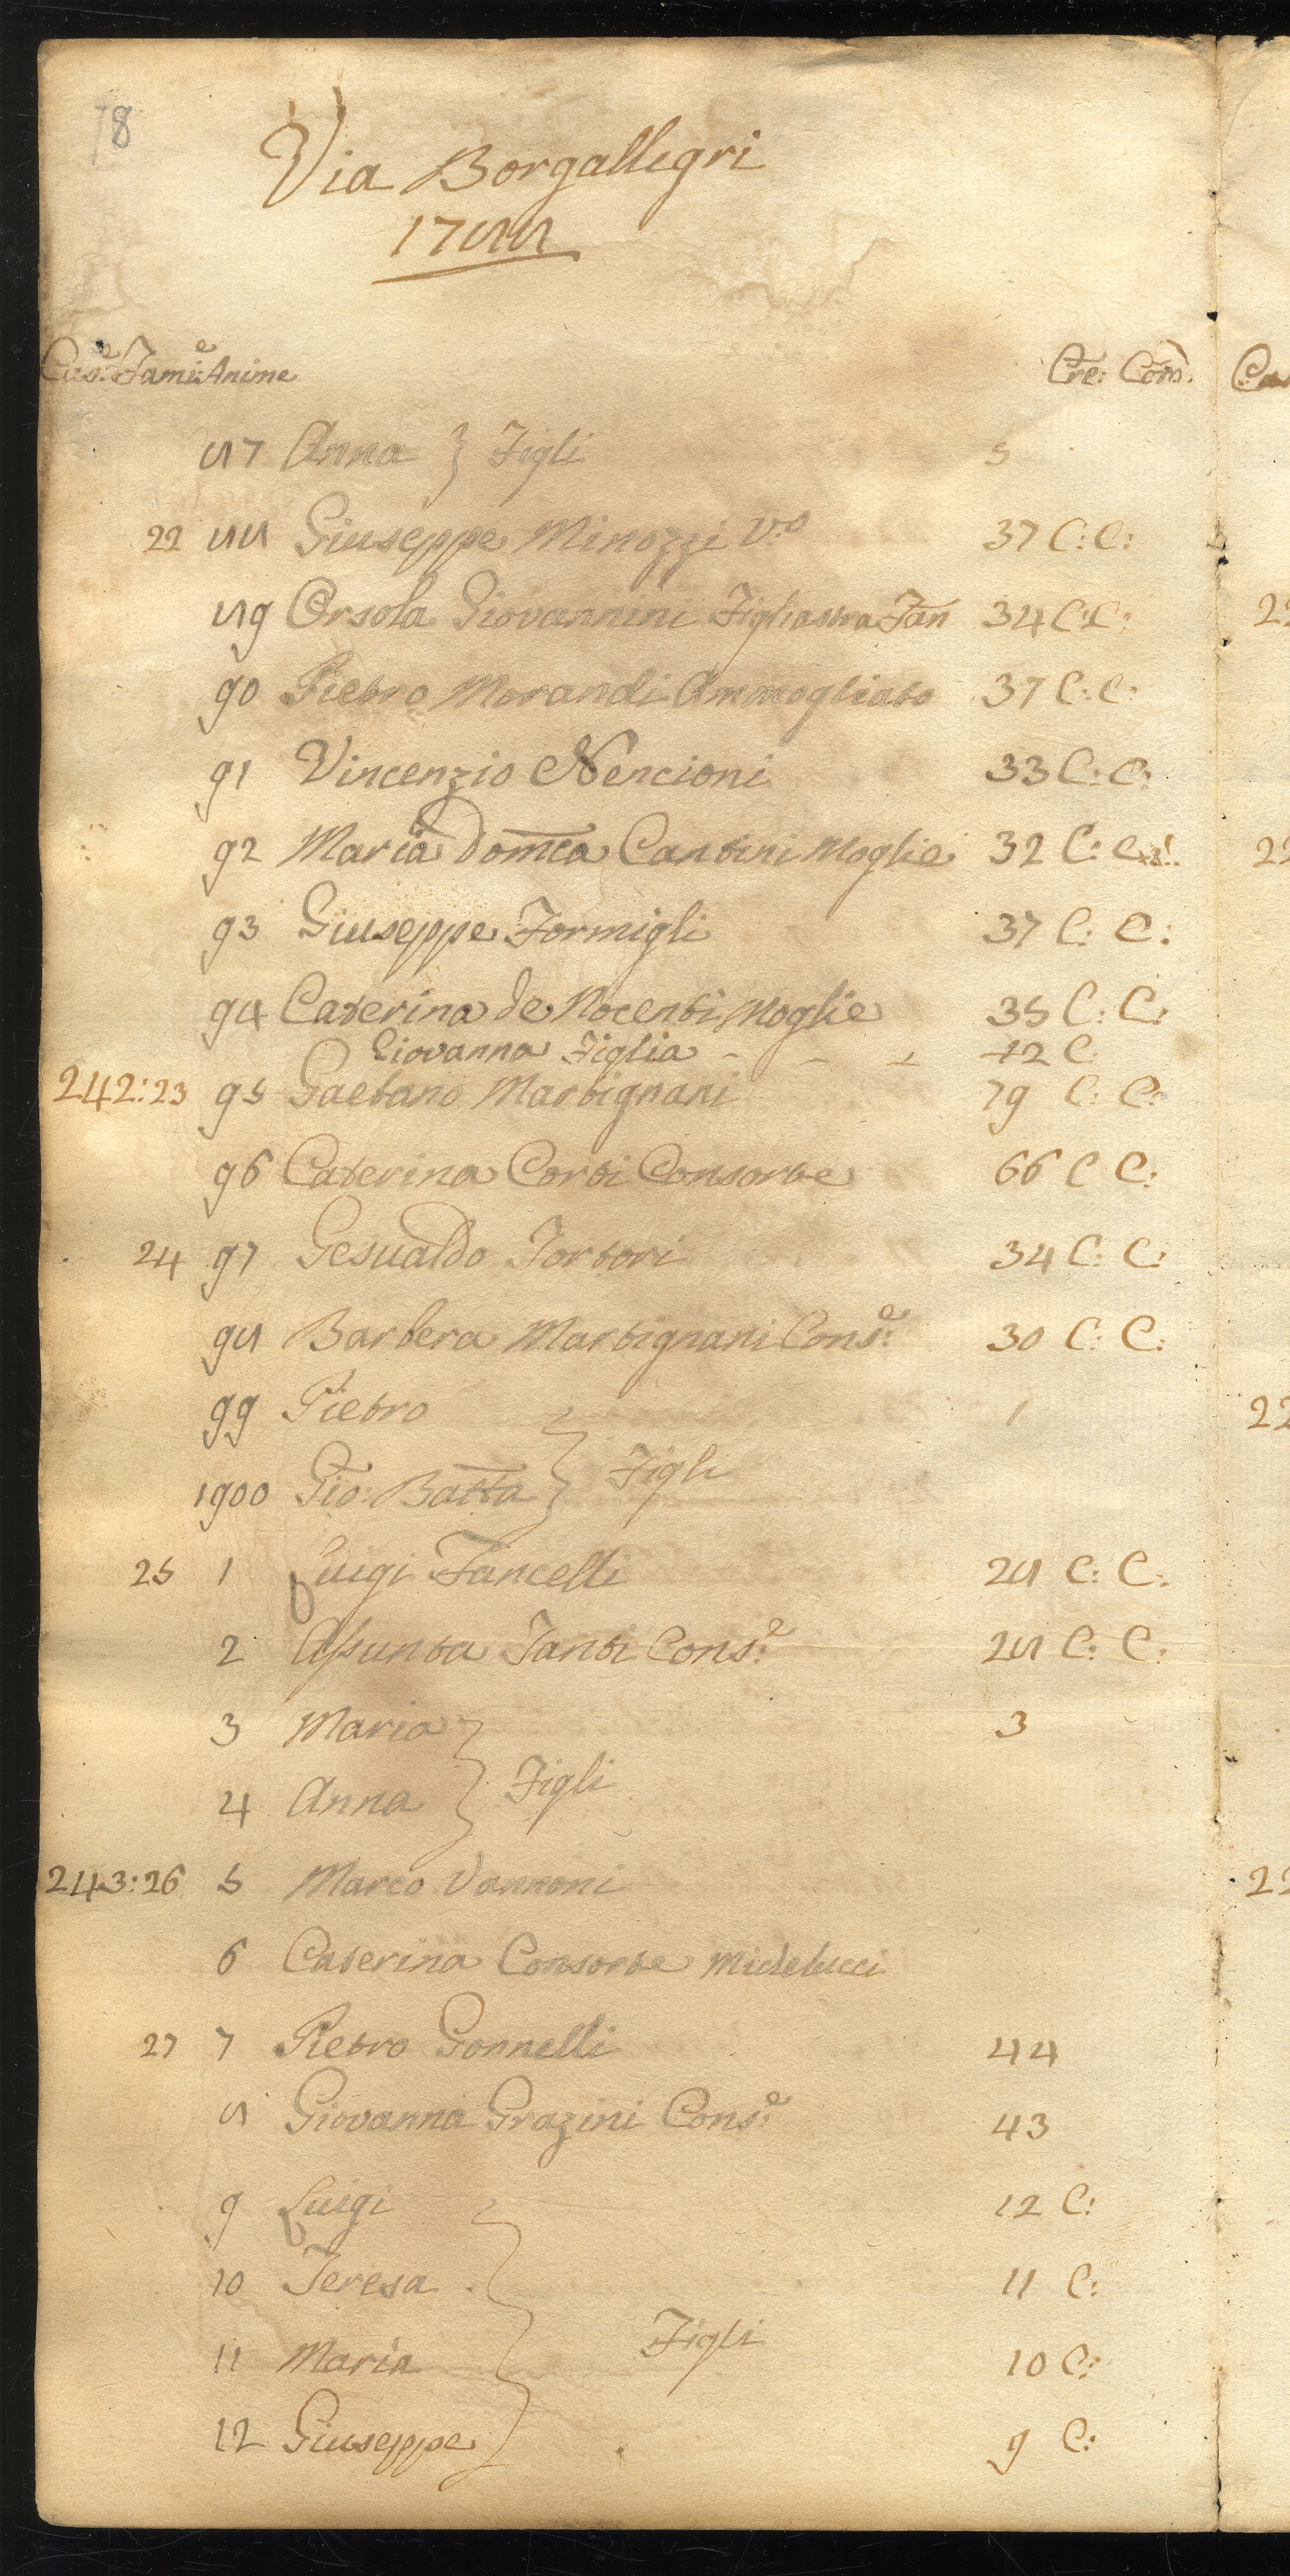 78
Via Borgallegri
1788
Case: Famie: Anime Cre: Com.
87 Anna } Figli 5
22 88 Giuseppe Minozzi V.o 37 C: C:
89 Orsola Giovannini Figliastra Fan 34 C: C:
90 Pietro Morandi Ammogliato 37 C: C:
91 Vincenzio Nencioni 33 C: C:
92 Maria Domca Cantini Moglie 32 C: C:
93 Giuseppe Formigli 37 C: C:
94 Caterina de Nocenti Moglie 35 C: C:
Giovanna Figlia - - - 12 C.
242:23 95 Gaetano Martignani 79 C: C:
96 Caterina Corti Consorte 66 C C:
24 97 Gesualdo Tortori 34 C: C:
98 Barbera Martignani Cons:e 30 C: C:
99 Pietro 1
1900 Gio: Batta } Figli
25 1 Luigi Fancelli 28 C: C:
2 Assunta Fanti Cons:e 28 C: C:
3 Maria 3
4 Anna } Figli
243:26 5 Marco Vannoni
6 Caterina Consorte Michelucci
27 7 Pietro Gonnelli 44
8 Giovanna Grazini Cons:e 43
9 Luigi 12 C:
10 Teresa 11 C:
11 Maria } Figli 10 C:
12 Giuseppe 9 C: